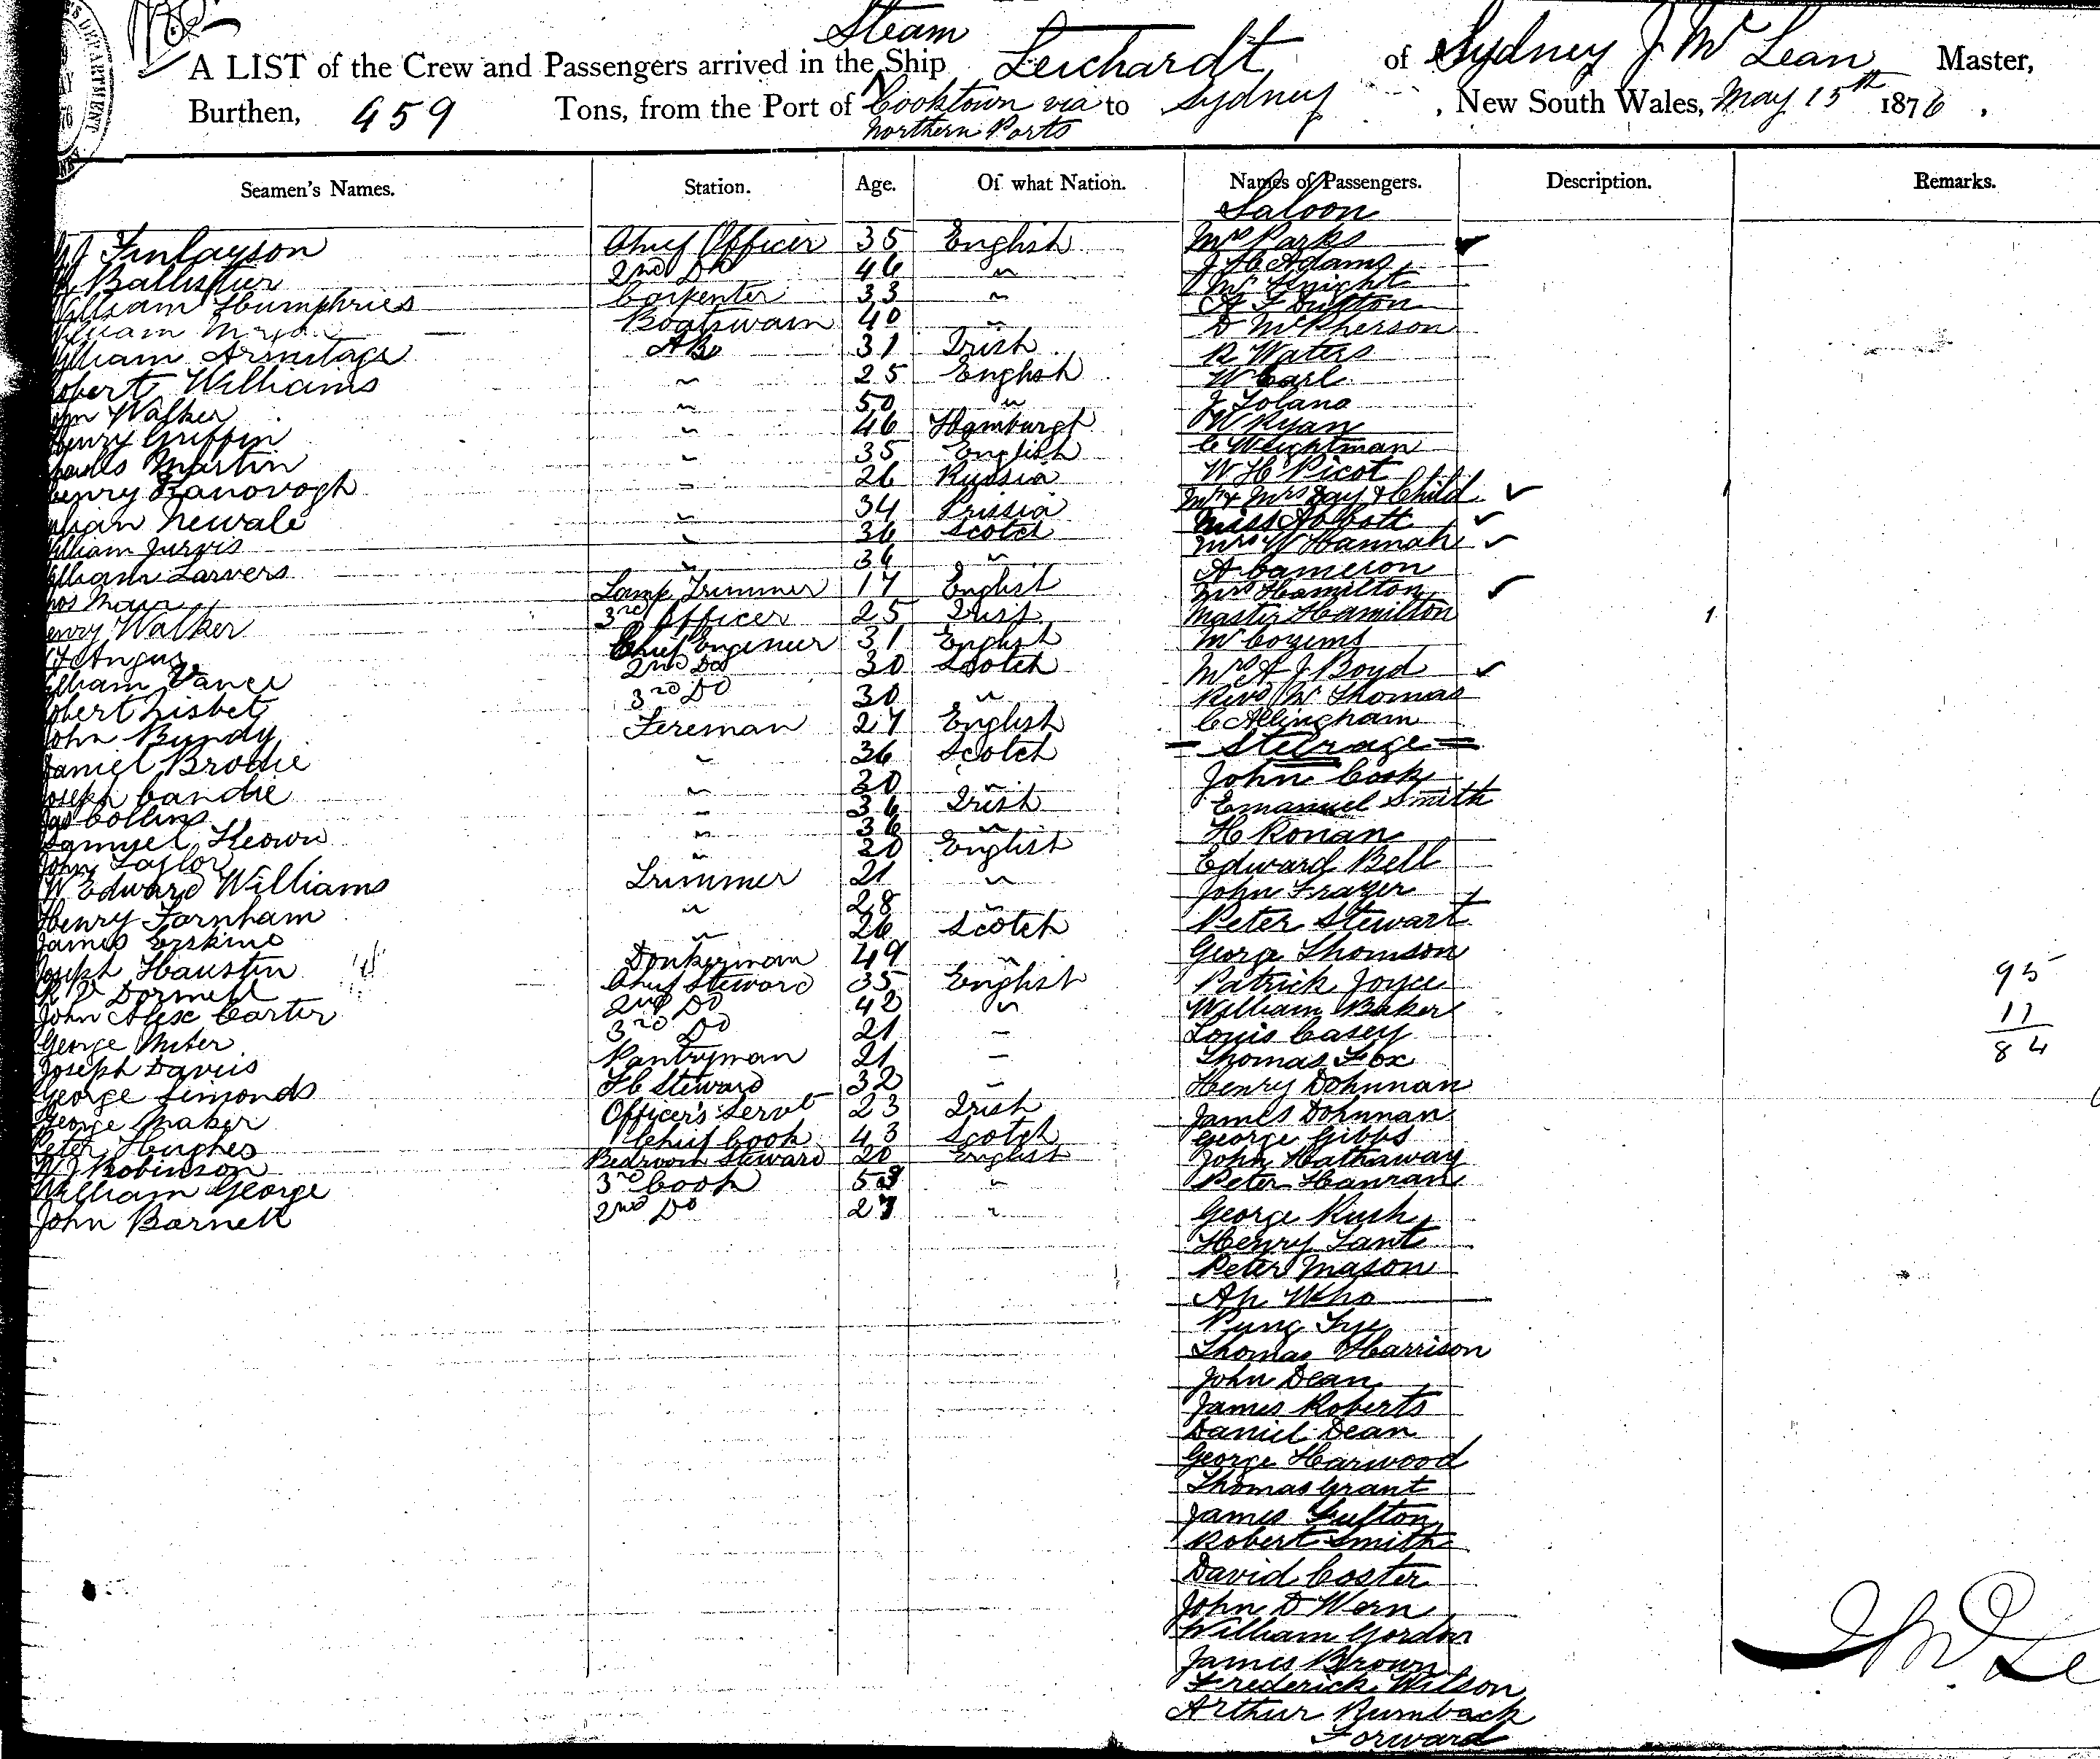 Steam
A LIST of the Crew and Passengers arrived in the Ship Leichardt of Sydney J. Mc Lean Master,
Burthen, 459 Tons, from the Port of Cooktown via to Sydney, New South Wales, May 15th 1876.
Northern Ports
Seamen's Names. Station. Age. Of what Nation. Names of Passengers. Description. Remarks.
Saloon
Finlayson Chief Officer 35 English Mrs Parks
Ballister 2nd Do 46 " J H Adams
William Humphries Carpenter 33 " Mr Knight
William Boatswain 40 " A F Sutton
D McPherson
William Armitage AB 31 Irish R Waters
Robert Williams " 25 English W Carl
John Walker " 50 " J Tolano
Henry Griffin " 46 Hamburgh W Ryan
Charles Martin " 35 English C Weightman
Henry Kanovogh " 26 Russia W H Picot
Newale " 34 Prissia Mr & Mrs Day & Child
William Jurvis " 36 Scotch Miss Abbott
William Larvers " 36 " Mrs W Hannah
A Cameron
Lamp Trimmer 17 English Mrs Hamilton
Henry Walker 3rd Officer 25 Irish Master Hamilton
Angus Chief Engineer 31 English Mr Cozens
William Vance 2nd Do 30 Scotch Mrs A J Boyd
Robert Lisbet 3rd Do 30 " Revd W Thomas
John Bundy Fereman 27 English C Allingham
Daniel Brodie " 36 Scotch = Steerage =
Joseph Candie " 30 " John Cook
Jas Collins " 36 Irish Emanuel Smith
Samuel Keown " 36 " H Ronan
John Taylor " 20 English Edward Bell
W Edward Williams Trimmer 21 " John Frazer
Henry Farnham " 28 " Peter Stewart
James Erskine " 26 Scotch George Thomson
Joseph Haustin Donkerman 49 " Patrick Joyce
R V Dormell Chief Steward 35 English William Baker
John Alex Carter 2nd Do 42 " Louis Casey
George Miter 3rd Do 21 – Thomas Fox
Joseph Davies Pantryman 21 – Henry Dohnnan
George Simonds FC Steward 32 – James Dohnnan
George Maker Officer's Servt 23 Irish George Gibbs
Peter Hughes Chief Cook 43 Scotch John Hathaway
W J Robinson Bedroom Steward 20 English Peter Hanran
William George 3rd Cook 59 " George Rush
John Barnett 2nd Do 27 " Henry Lant
Peter Mason
Ah Who
Pung Fye
Thomas Harrison
John Dean
James Roberts
Daniel Dean
George Harwood
Thomas Grant
James Fulton
Robert Smith
David Coster
John D Wern
William Gordon
James Brown
Frederick Wilson
Arthur Rumback
Forward
95
11
84